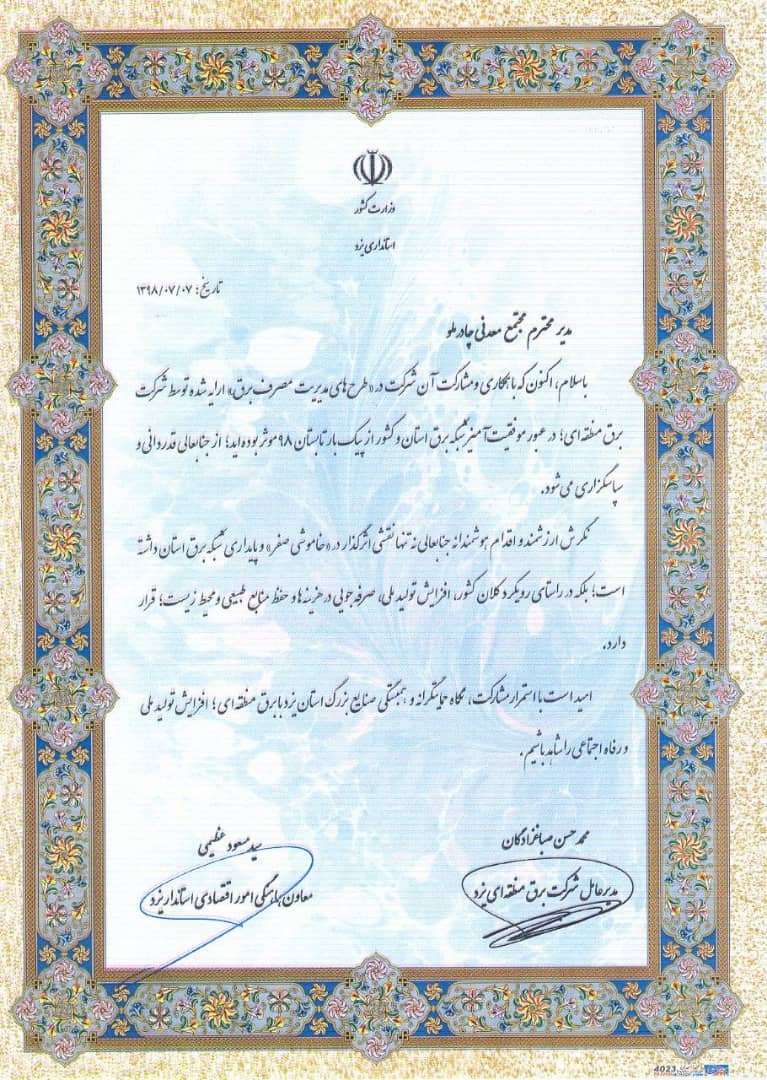 وزارت کشور
استانداری یزد
تاریخ: ۱۳۹۸/۰۷/۰۷
مدیر محترم مجتمع معدنی چادرملو
باسلام، اکنون که با همکاری و مشارکت آن شرکت در «طرح های مدیریت مصرف برق» ارایه شده توسط شرکت
برق منطقه ای؛ در عبور موفقیت آمیز شبکه برق استان و کشور از پیک بار تابستان ۹۸ موثر بوده اید؛ از جنابعالی قدردانی و
سپاسگزاری می شود.
نگرش ارزشمند و اقدام هوشمندانه جنابعالی نه تنها نقشی اثرگذار در «خاموشی صفر» و پایداری شبکه برق استان داشته
است؛ بلکه در راستای رویکرد کلان کشور، افزایش تولید ملی، صرفه جویی در هزینه ها و حفظ منابع طبیعی و محیط زیست؛ قرار
دارد.
امید است با استمرار مشارکت، نگاه حمایتگرانه و همبستگی صنایع بزرگ استان یزد با برق منطقه ای؛ افزایش تولید ملی
و رفاه اجتماعی را شاهد باشیم.
محمد حسن صباغزادگان
مدیرعامل شرکت برق منطقه ای یزد
سید مسعود عظیمی
معاون هماهنگی امور اقتصادی استاندار یزد
4023